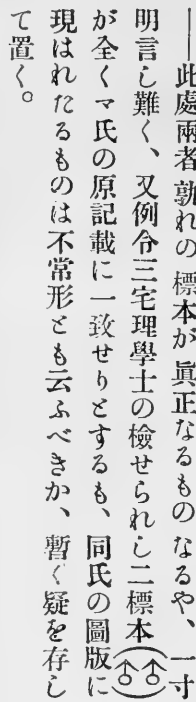 ――此處兩者孰れの標本が眞正なるものなるや、一寸
明言し難く、又例令三宅理學士の檢せられし二標本(♂♂)
が全くマ氏の原記載に一致せりとするも、同氏の圖版に
現はれたるものは不常形とも云ふべきか、暫く疑を存し
て置く。